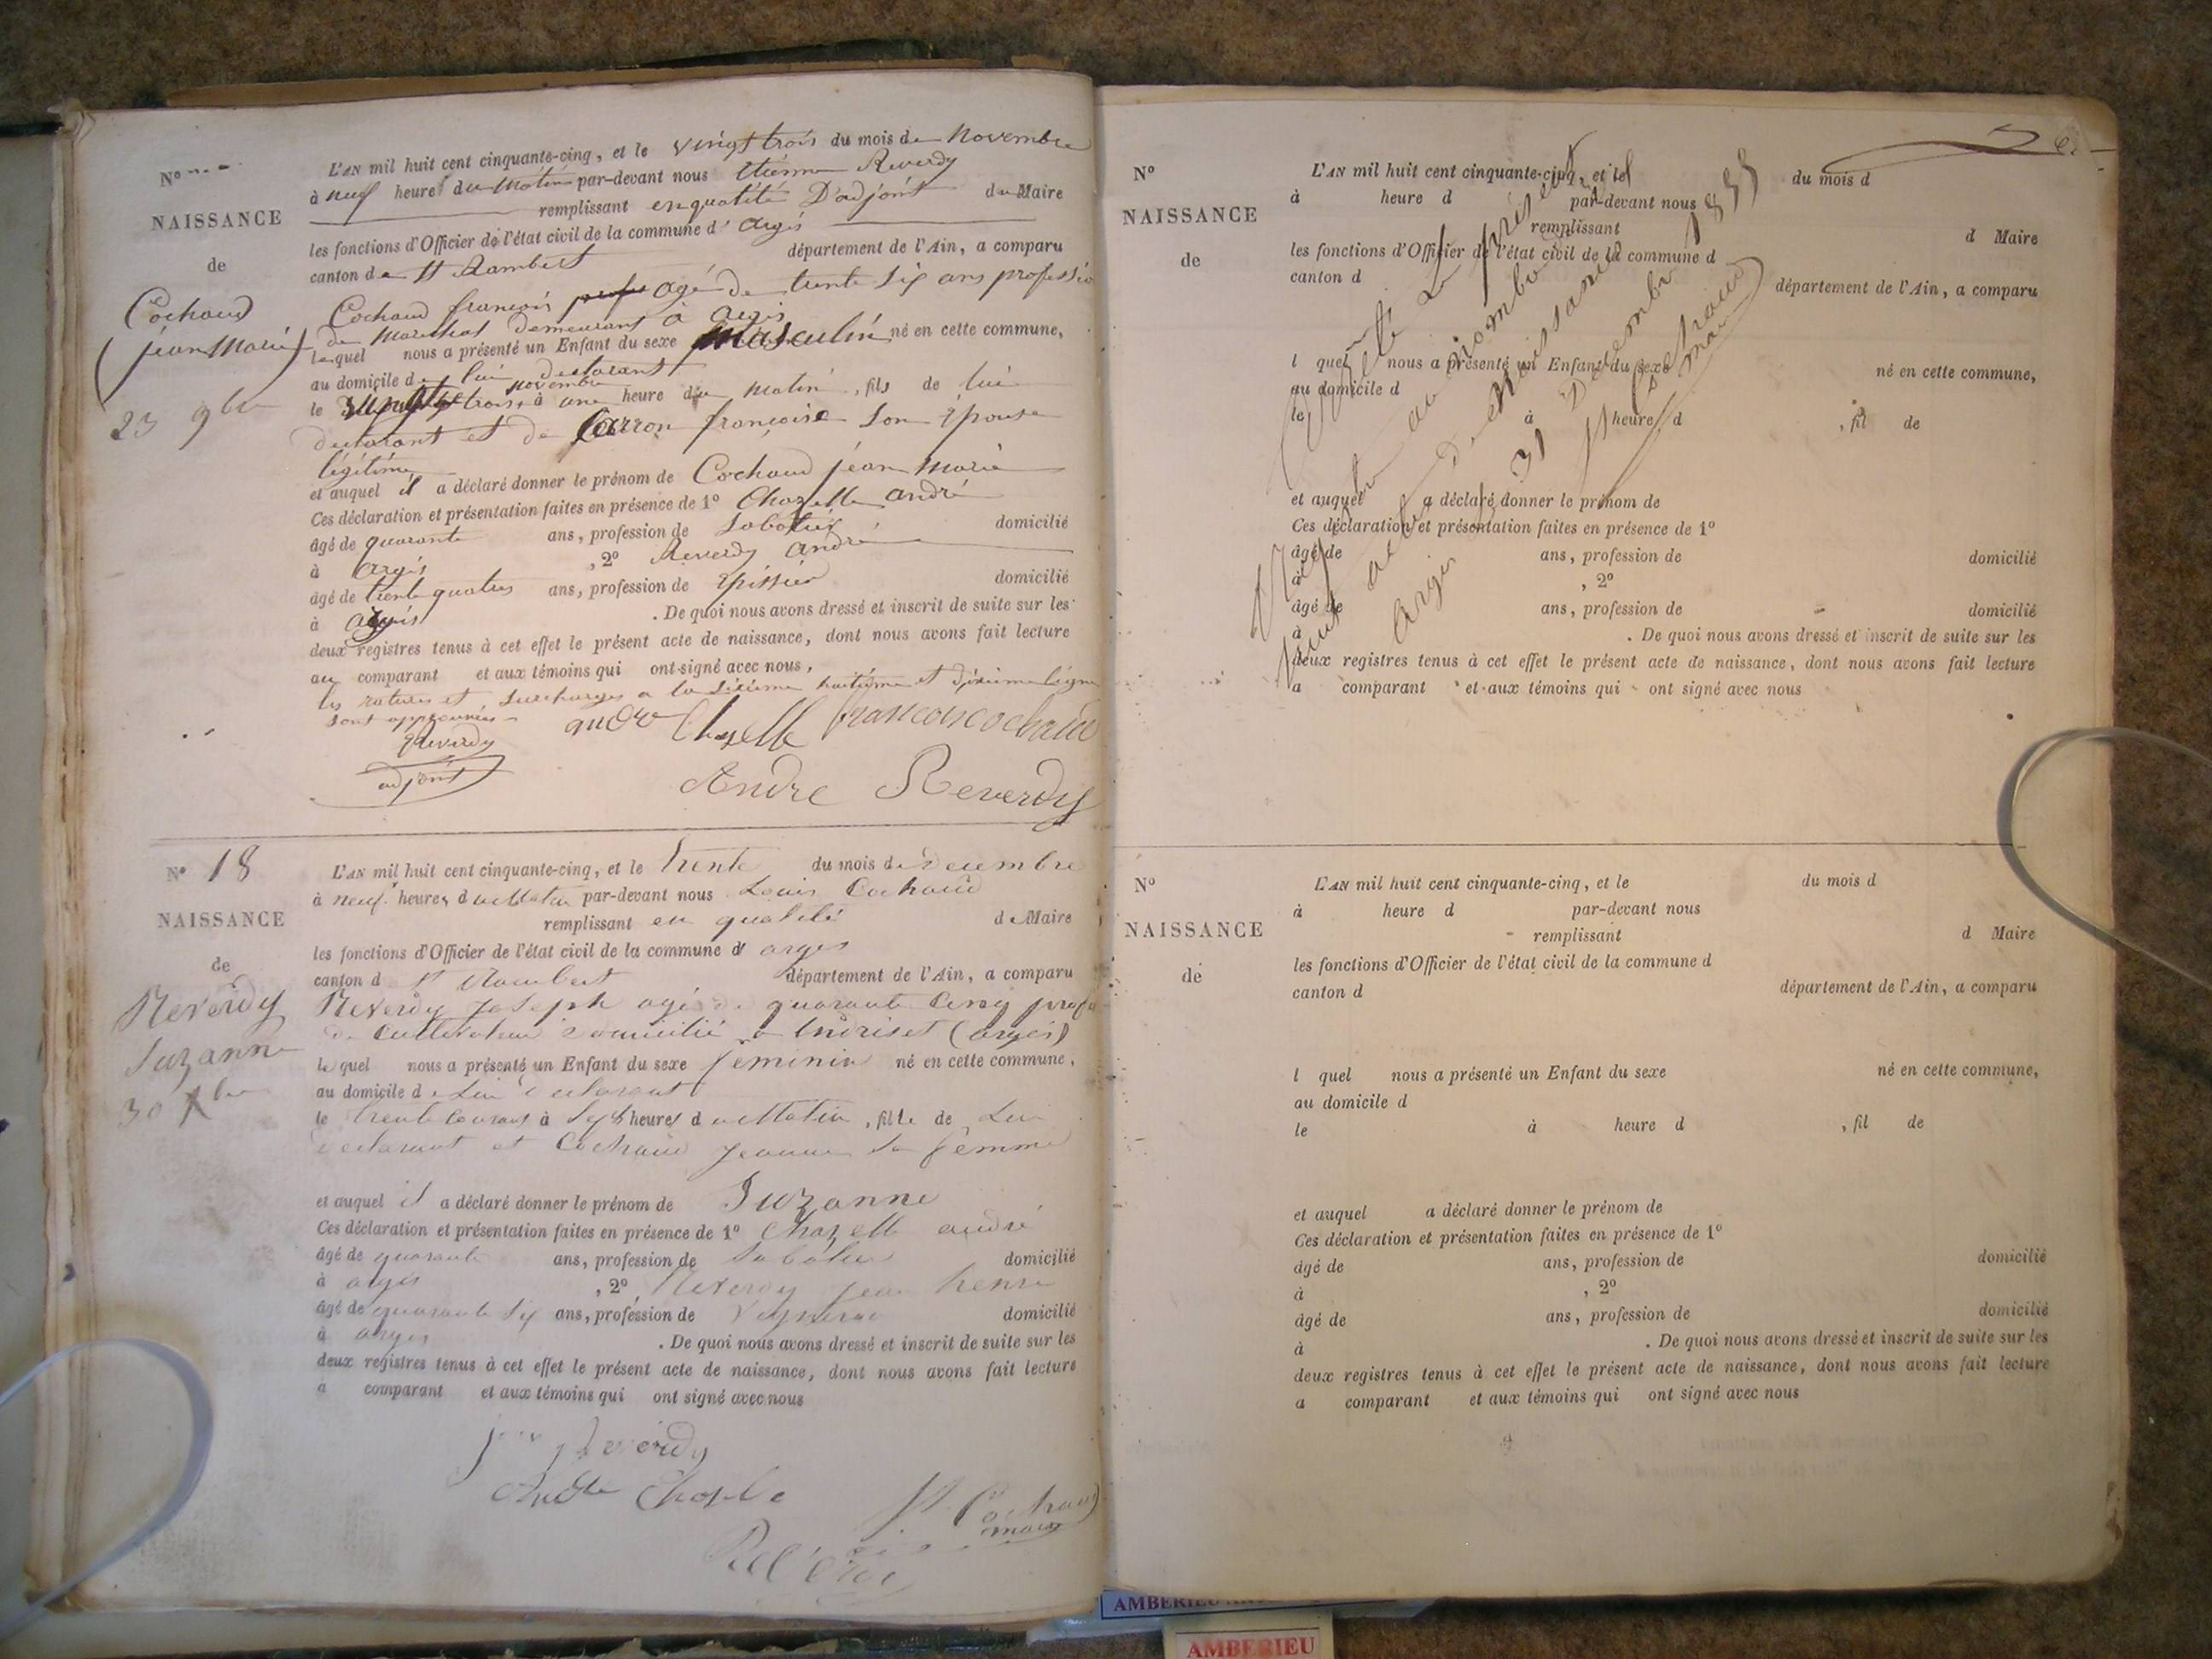 N°
NAISSANCE
de
Cochaud
(jean Marie)
23 9bre
L'AN mil huit cent cinquante-cinq, et le vingt trois du mois de Novembre
à neuf heures du Matin par-devant nous étienne Reverdy
remplissant en qualité D'adjoint du Maire
les fonctions d'Officier de l'état civil de la commune d'argis
canton de St Rambert département de l'Ain, a comparu
Cochaud françois agé de trente six ans professio
de Marechal demeurant à argis
lequel nous a présenté un Enfant du sexe masculin, né en cette commune,
au domicile de lui declarant
novembre
le vingt trois, à une heure du matin, fils de lui
declarant et de Carron françoise son épouse
légitime
et auquel il a déclaré donner le prénom de Cochaud jéan Marie
Ces déclaration et présentation faites en présence de 1° Chazelle andré
âgé de quarante ans, profession de Sabotier domicilié
à argis, 2° Reverdy andré
âgé de trente quatres ans, profession de épissier domicilié
à argis. De quoi nous avons dressé et inscrit de suite sur les
deux registres tenus à cet effet le présent acte de naissance, dont nous avons fait lecture
au comparant et aux témoins qui ont signé avec nous,
les ratures et surcharges a la sixième huitième et dixième légne
sont approuvées
andre Chazelle francois cochaud
Reverdy
adjoint
Andre Reverdy
N° 18
NAISSANCE
de
Reverdy
Suzanne
30 Xbre
L'AN mil huit cent cinquante-cinq, et le trente du mois de decembre
à neuf heures du Matin par-devant nous Louis Cochaud
remplissant en qualité de Maire
les fonctions d'Officier de l'état civil de la commune d argis
canton d St Rambert département de l'Ain, a comparu
Reverdy Joseph agé de quarante cinq prof
de cultivateur domicilié a Indriset (argis)
lequel nous a présenté un Enfant du sexe feminin né en cette commune,
au domicile de Lui declarant
le trente courant à Sept heures du Matin, fille de Lui
declarant et Cochaud Jeanne sa femme
et auquel il a déclaré donner le prénom de Suzanne
Ces déclaration et présentation faites en présence de 1° Chazelle andré
âgé de quarante ans, profession de Sabotier domicilié
à argis, 2° Reverdy jean henri
âgé de quarante six ans, profession de Vigneron domicilié
à argis. De quoi nous avons dressé et inscrit de suite sur les
deux registres tenus à cet effet le présent acte de naissance, dont nous avons fait lecture
a comparant et aux témoins qui ont signé avec nous
Reverdy
Chazelle
Cochaud
maire
N°
NAISSANCE
de
L'AN mil huit cent cinquante-cinq, et le du mois d
à heure d par-devant nous
remplissant d Maire
les fonctions d'Officier de l'état civil de la commune d
canton d département de l'Ain, a comparu
l quel nous a présenté un Enfant du sexe né en cette commune,
au domicile d
le à heure d, fil de
et auquel a déclaré donner le prénom de
Ces déclaration et présentation faites en présence de 1°
âgé de ans, profession de domicilié
à, 2°
âgé de ans, profession de domicilié
à. De quoi nous avons dressé et inscrit de suite sur les
deux registres tenus à cet effet le présent acte de naissance, dont nous avons fait lecture
a comparant et aux témoins qui ont signé avec nous
au nombre
actes de Naissance
argis 31 Decembre 1855
Cochaud
maire
N°
NAISSANCE
de
L'AN mil huit cent cinquante-cinq, et le du mois d
à heure d par-devant nous
remplissant d Maire
les fonctions d'Officier de l'état civil de la commune d
canton d département de l'Ain, a comparu
l quel nous a présenté un Enfant du sexe né en cette commune,
au domicile d
le à heure d, fil de
et auquel a déclaré donner le prénom de
Ces déclaration et présentation faites en présence de 1°
âgé de ans, profession de domicilié
à, 2°
âgé de ans, profession de domicilié
à. De quoi nous avons dressé et inscrit de suite sur les
deux registres tenus à cet effet le présent acte de naissance, dont nous avons fait lecture
a comparant et aux témoins qui ont signé avec nous
AMBERIEU
AMBERIEU